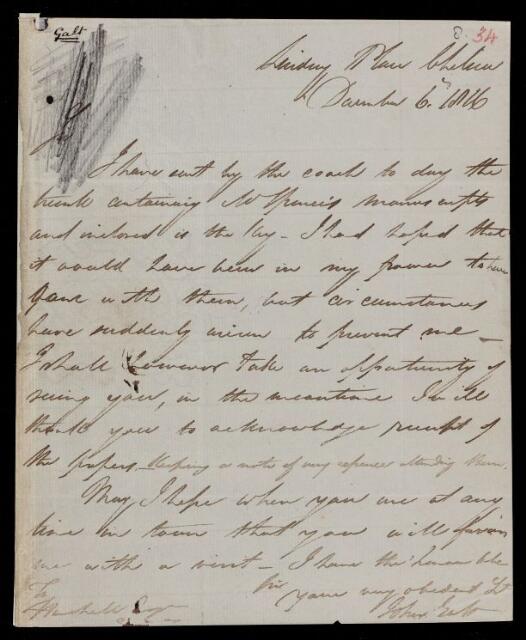 Galt
8. 34
Lindsey Place Chelsea
December 6th 1816
Sir
I have sent by the coach to day the
trunk containing Mr manuscripts
and inclosed is the key - I had hoped that
it would have been in my power to have
gone with them, but circumstances
have suddenly arisen to prevent me -
I shall however take an opportunity of
seeing you, in the meantime I will
thank you to acknowledge receipt of
the papers - Keeping a note of any expences attending them.
May I hope when you are at any
time in town that you will favor
me with a visit - I have the honor to be
Sir
your very obedient St
To
Esqr
John Galt